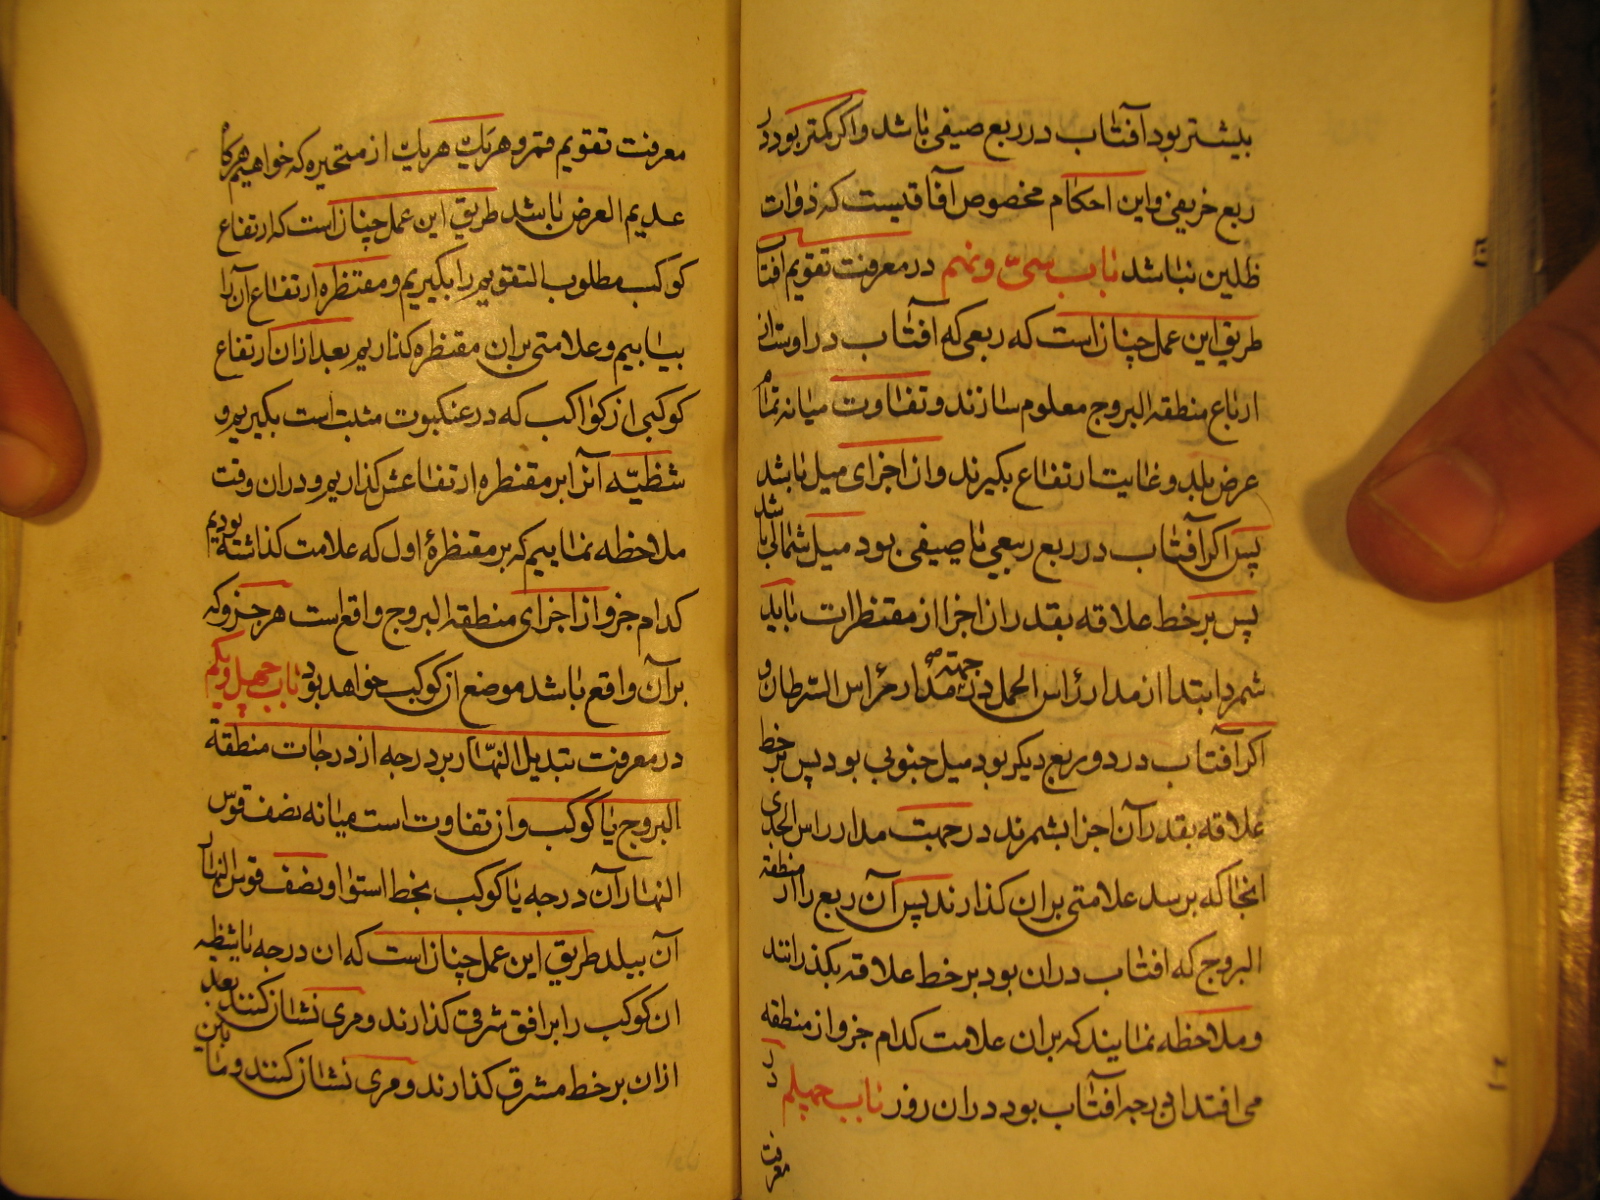 بیشتر بود آفتاب در ربع صیفی باشد و اگر کمتر بود در
ربع خریفی و این احکام مخصوص آفاقیست که ذوات
ظلین نباشد باب سیّ و نهم در معرفت تقویم آفتاب
طریق این عمل چنان است که ربعی که افتاب در اوست از
ارباع منطقه البروج معلوم سازند و تفاوت میانه تمام
عرض بلد و غایت ارتفاع بگیرند و ان اجزای میل باشد
پس اگر آفتاب در ربع ربیعی یا صیفی بود میل شمالی باشد
پس بر خط علاقه بقدر ان اجزا از مقنطرات باید
شمرد ابتدا از مدار رأس الحمل در جهته مدار رأس السرطان و
اگر آفتاب در دو ربع دیگر بود میل جنوبی بود پس بر خط
علاقه بقدر آن اجزا بشمرند در جهت مدار راس الجدی
انجا که برسد علامتی بران گذارند پس آن ربع را از منطقة
البروج که افتاب دران بود بر خط علاقه بگذرانند
و ملاحظه نمایند که بران علامت کدام جزو از منطقه
می افتد ان درجه آفتاب بود دران روز باب چهلم در
معرفت
معرفت تقویم قمر و هر یک هر یک از متحیره که خواهیم هرگاه
عدیم العرض باشد طریق این عمل چنان است که ارتفاع
کوکب مطلوب التقویم را بگیریم و مقنطره ارتفاع آن را
بیابیم و علامتی بران مقنطره گذاریم بعد ازان ارتفاع
کوکبی از کواکب که در عنکبوت مثبت است بگیریم و
شظیّه آنرا بر مقنطره ارتفاعش گذاریم و دران وقت
ملاحظه نماییم که بر مقنطرهٔ اول که علامت گذاشته بودیم
کدام جزو از اجزای منطقه البروج واقع است هر جزو که
برآن واقع باشد موضع از کوکب خواهد بود باب چهل و یکم
در معرفت تبدیل النهار بر درجه از درجات منطقة
البروج یا کوکب و از تفاوت است میانه نصف قوس
النهار آن درجه یا کوکب بخط استوا و نصف قوس النهار
آن ببلد طریق این عمل چنان است که ان درجه یا شظیه
ان کوکب را بر افق شرقی گذارند و مری نشان کنند بعد
ازان بر خط مشرق گذارند و مری نشان کنند و ما بین